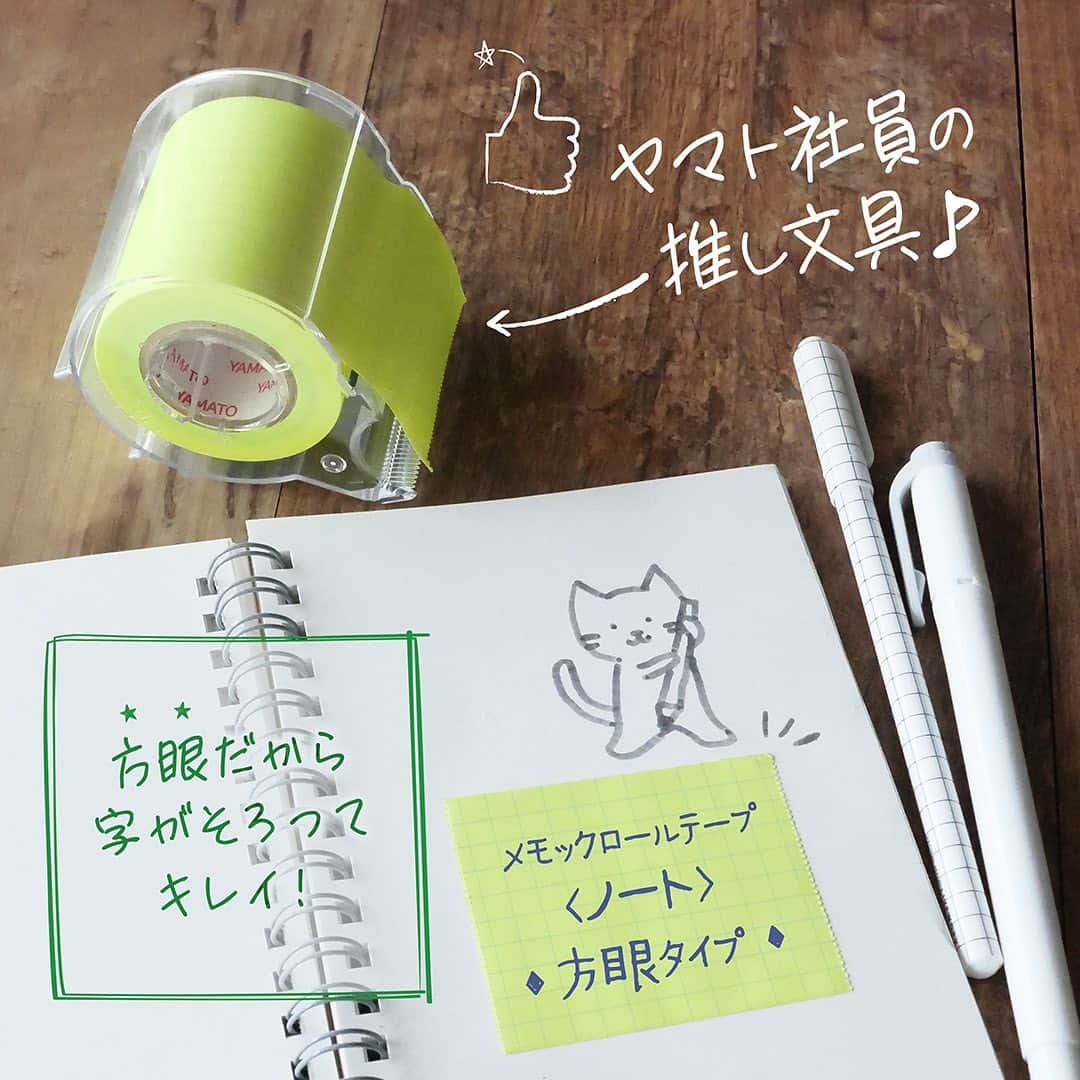 ヤマト社員の
推し文具♪
YAMATO
YAMATO
方眼だから
字がそろって
キレイ!
メモックロールテープ
〈ノート〉
♦方眼タイプ♦